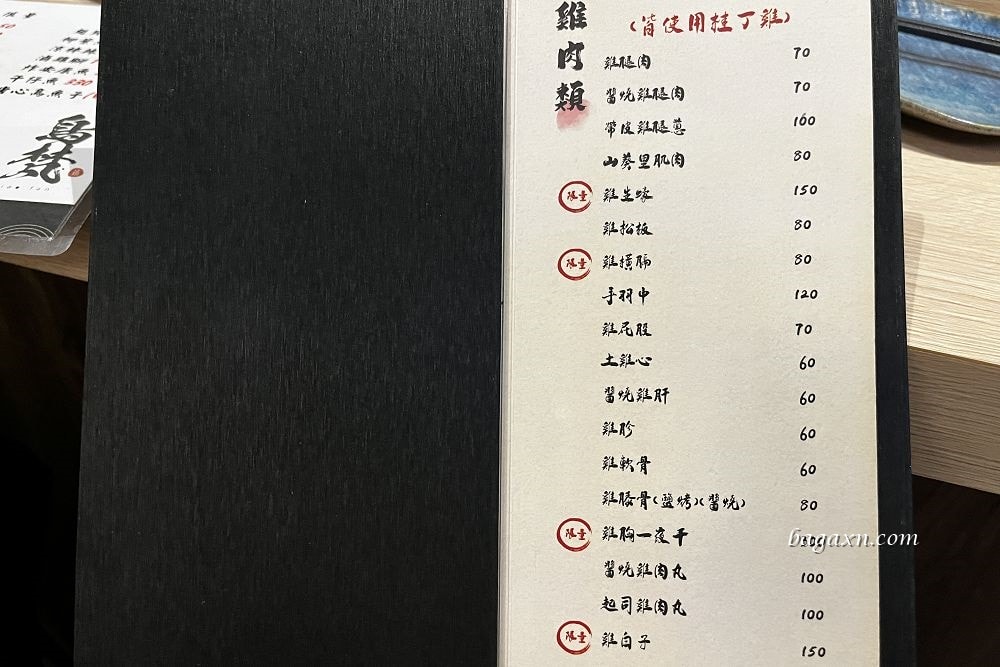 雞肉類
(皆使用桂丁雞)
雞腿肉 70
醬燒雞腿肉 70
帶皮雞腿蔥 100
山葵里肌肉 80
限量 雞生蠔 150
雞松板 80
限量 雞橫膈 80
手羽中 120
雞屁股 70
土雞心 60
醬燒雞肝 60
雞胗 60
雞軟骨 60
雞膝骨(鹽烤)(醬燒) 80
限量 雞胸一夜干
醬燒雞肉丸 100
起司雞肉丸 100
限量 雞白子 150
bugaxn.com
鳥梵